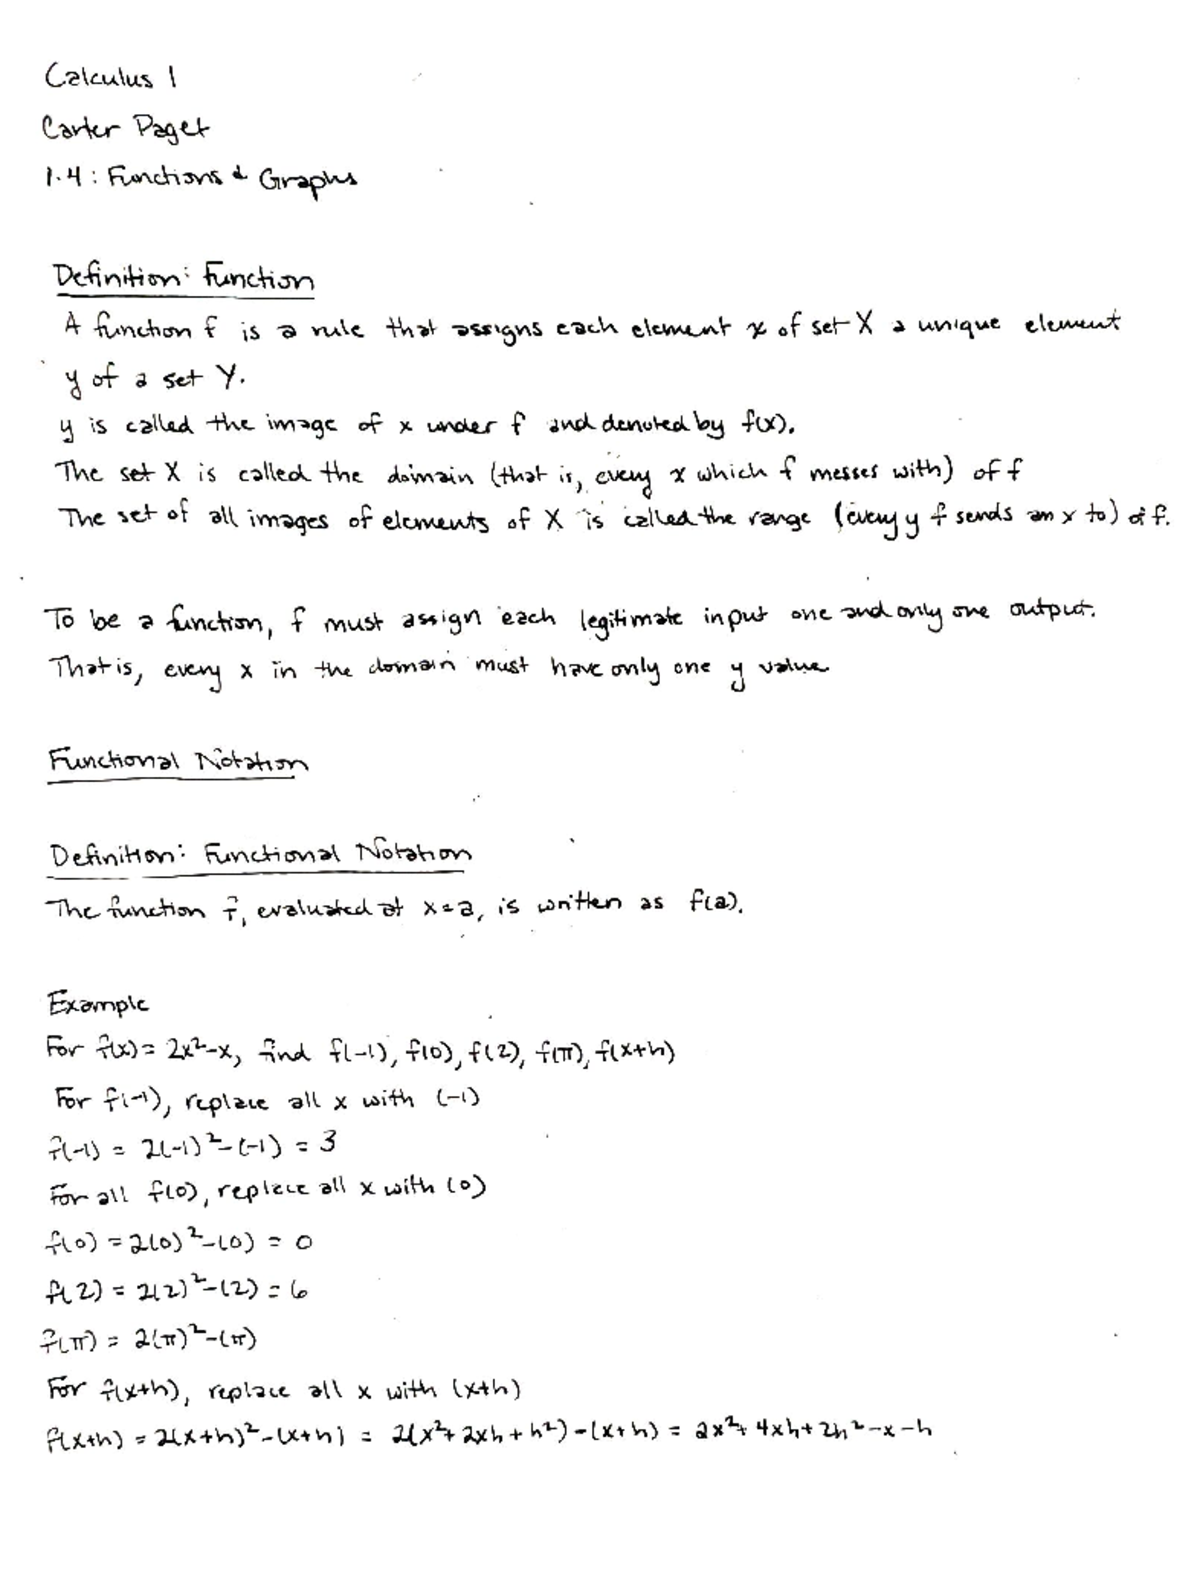 Calculus 1
Carter Paget
1.4: Functions & Graphs
Definition: Function
A function f is a rule that assigns each element x of set X a unique element
y of a set Y.
y is called the image of x under f and denoted by f(x).
The set X is called the domain (that is, every x which f messes with) of f
The set of all images of elements of X is called the range (every y f sends an x to) of f.
To be a function, f must assign each legitimate input one and only one output.
That is, every x in the domain must have only one y value
Functional Notation
Definition: Functional Notation
The function f, evaluated at x=a, is written as f(a).
Example
For f(x) = 2x²-x, find f(-1), f(0), f(2), f(π), f(x+h)
For f(-1), replace all x with (-1)
f(-1) = 2(-1)²-(-1) = 3
For all f(0), replace all x with (0)
f(0) = 2(0)²-(0) = 0
f(2) = 2(2)²-(2) = 6
f(π) = 2(π)²-(π)
For f(x+h), replace all x with (x+h)
f(x+h) = 2(x+h)²-(x+h) = 2(x²+2xh+h²)-(x+h) = 2x²+4xh+2h²-x-h